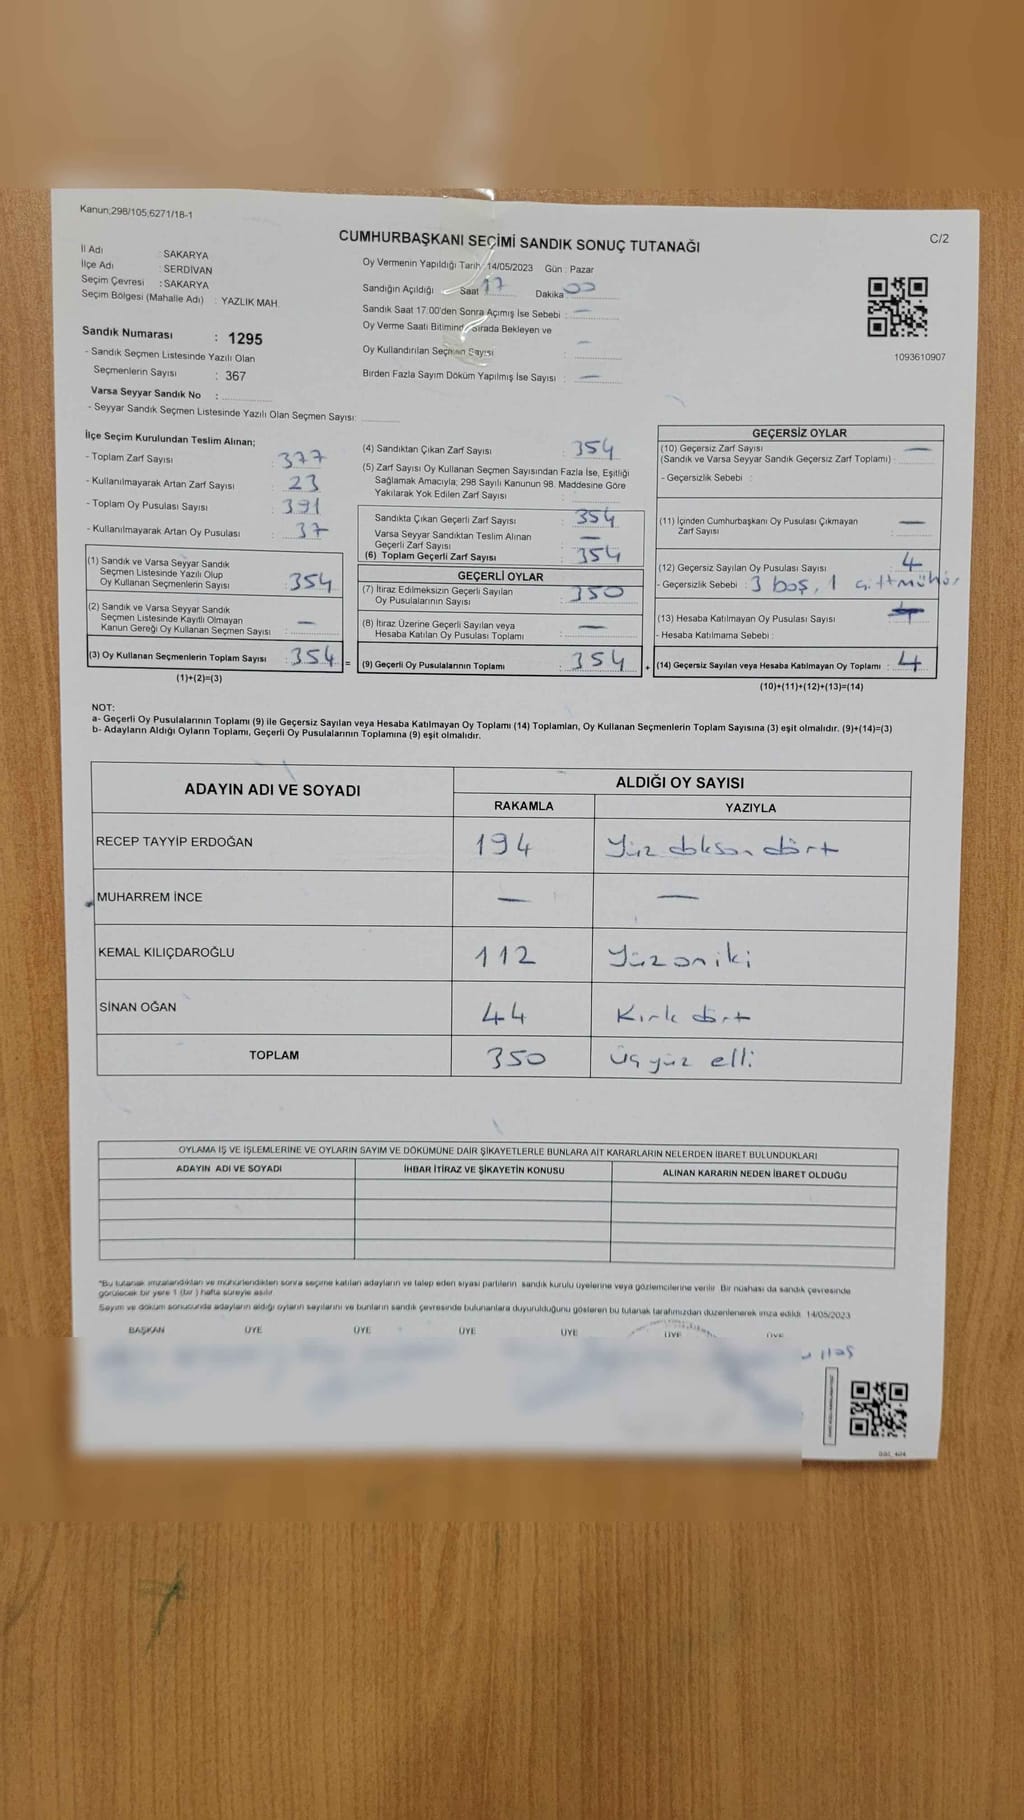 Kanun;298/105,6271/18-1
C/2
CUMHURBAŞKANI SEÇİMİ SANDIK SONUÇ TUTANAĞI
İl Adı : SAKARYA
İlçe Adı : SERDİVAN
Seçim Çevresi : SAKARYA
Seçim Bölgesi (Mahalle Adı) : YAZLIK MAH.
Sandık Numarası : 1295
- Sandık Seçmen Listesinde Yazılı Olan
Seçmenlerin Sayısı : 367
Varsa Seyyar Sandık No :
- Seyyar Sandık Seçmen Listesinde Yazılı Olan Seçmen Sayısı:
Oy Vermenin Yapıldığı Tarih 14/05/2023 Gün : Pazar
Sandığın Açıldığı Saat 17 Dakika 00
Sandık Saat 17.00'den Sonra Açımış İse Sebebi : —
Oy Verme Saati Bitiminde Sırada Bekleyen ve
Oy Kullandırılan Seçmen Sayısı : —
Birden Fazla Sayım Döküm Yapılmış İse Sayısı : —
1093610907
İlçe Seçim Kurulundan Teslim Alınan;
- Toplam Zarf Sayısı : 377
- Kullanılmayarak Artan Zarf Sayısı : 23
- Toplam Oy Pusulası Sayısı : 391
- Kullanılmayarak Artan Oy Pusulası : 37
(1) Sandık ve Varsa Seyyar Sandık
Seçmen Listesinde Yazılı Olup
Oy Kullanan Seçmenlerin Sayısı : 354
(2) Sandık ve Varsa Seyyar Sandık
Seçmen Listesinde Kayıtlı Olmayan
Kanun Gereği Oy Kullanan Seçmen Sayısı : —
(3) Oy Kullanan Seçmenlerin Toplam Sayısı : 354 =
(1)+(2)=(3)
(4) Sandıktan Çıkan Zarf Sayısı : 354
(5) Zarf Sayısı Oy Kullanan Seçmen Sayısından Fazla İse, Eşitliği
Sağlamak Amacıyla; 298 Sayılı Kanunun 98. Maddesine Göre
Yakılarak Yok Edilen Zarf Sayısı :
Sandıkta Çıkan Geçerli Zarf Sayısı : 354
Varsa Seyyar Sandıktan Teslim Alınan
Geçerli Zarf Sayısı : —
(6) Toplam Geçerli Zarf Sayısı : 354
GEÇERLİ OYLAR
(7) İtiraz Edilmeksizin Geçerli Sayılan
Oy Pusulalarının Sayısı : 350
(8) İtiraz Üzerine Geçerli Sayılan veya
Hesaba Katılan Oy Pusulası Toplamı : —
(9) Geçerli Oy Pusulalarının Toplamı : 354 +
GEÇERSİZ OYLAR
(10) Geçersiz Zarf Sayısı : —
(Sandık ve Varsa Seyyar Sandık Geçersiz Zarf Toplamı)
- Geçersizlik Sebebi :
(11) İçinden Cumhurbaşkanı Oy Pusulası Çıkmayan
Zarf Sayısı : —
(12) Geçersiz Sayılan Oy Pusulası Sayısı : 4
- Geçersizlik Sebebi : 3 boş, 1 çift mühür
(13) Hesaba Katılmayan Oy Pusulası Sayısı :
- Hesaba Katılmama Sebebi :
(14) Geçersiz Sayılan veya Hesaba Katılmayan Oy Toplamı : 4
(10)+(11)+(12)+(13)=(14)
NOT:
a- Geçerli Oy Pusulalarının Toplamı (9) ile Geçersiz Sayılan veya Hesaba Katılmayan Oy Toplamı (14) Toplamları, Oy Kullanan Seçmenlerin Toplam Sayısına (3) eşit olmalıdır. (9)+(14)=(3)
b- Adayların Aldığı Oyların Toplamı, Geçerli Oy Pusulalarının Toplamına (9) eşit olmalıdır.
ADAYIN ADI VE SOYADI
ALDIĞI OY SAYISI
RAKAMLA YAZIYLA
RECEP TAYYİP ERDOĞAN 194 Yüz doksan dört
MUHARREM İNCE — —
KEMAL KILIÇDAROĞLU 112 Yüzoniki
SİNAN OĞAN 44 Kırk dört
TOPLAM 350 Üçyüz elli
OYLAMA İŞ VE İŞLEMLERİNE VE OYLARIN SAYIM VE DÖKÜMÜNE DAİR ŞİKAYETLERLE BUNLARA AİT KARARLARIN NELERDEN İBARET BULUNDUKLARI
ADAYIN ADI VE SOYADI İHBAR İTİRAZ VE ŞİKAYETİN KONUSU ALINAN KARARIN NEDEN İBARET OLDUĞU
*Bu tutanak imzalandıktan ve mühürlendikten sonra seçime katılan adayların ve talep eden siyasi partilerin sandık kurulu üyelerine veya gözlemcilerine verilir. Bir nüshası da sandık çevresinde
görülecek bir yere 1 (bir) hafta süreyle asılır
Sayım ve döküm sonucunda adayların aldığı oyların sayılarını ve bunların sandık çevresinde bulunanlara duyurulduğunu gösteren bu tutanak tarafımızdan düzenlenerek imza edildi. 14/05/2023
BAŞKAN ÜYE ÜYE ÜYE ÜYE ÜYE ÜYE